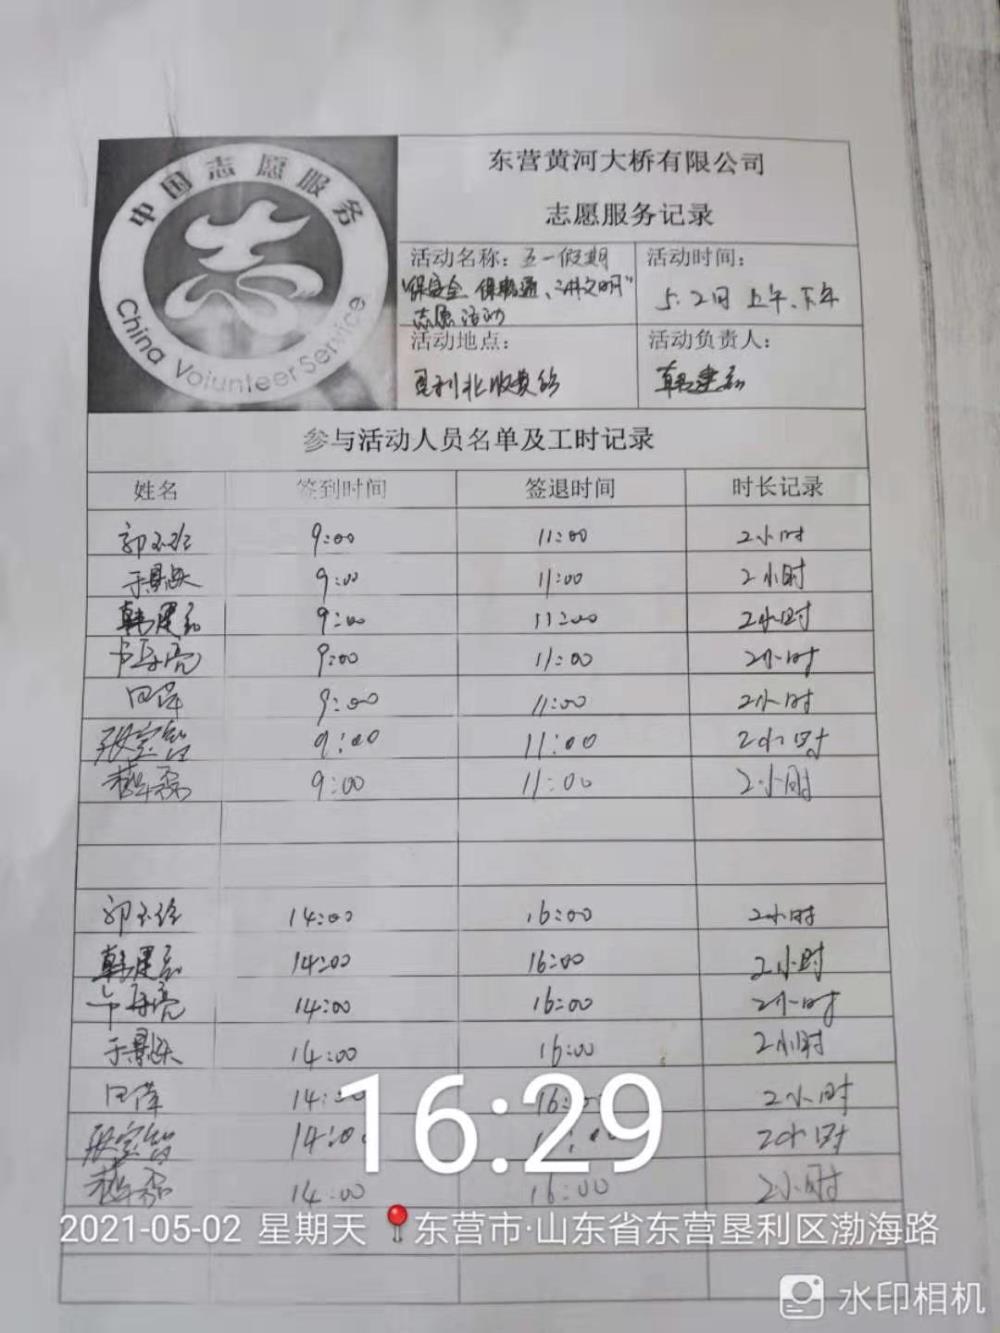 中国志愿服务
China Volunteer Service
东营黄河大桥有限公司
志愿服务记录
活动名称：五一假期
“保安全、保畅通、讲文明”
志愿活动
活动时间：
5.2日 上午、下午
活动地点：
垦利北收费站
活动负责人：
韩建
参与活动人员名单及工时记录
姓名 签到时间 签退时间 时长记录
郭玉 9:00 11:00 2小时
于景跃 9:00 11:00 2小时
韩建 9:00 11:00 2小时
亮 9:00 11:00 2小时
田 9:00 11:00 2小时
张宝智 9:00 11:00 2小时
9:00 11:00 2小时
郭玉 14:00 16:00 2小时
韩建 14:00 16:00 2小时
亮 14:00 16:00 2小时
于景跃 14:00 16:00 2小时
田 14:00 16:00 2小时
张宝智 14:00 2小时
14:00 16:00 2小时
16:29
2021-05-02 星期天 东营市·山东省东营垦利区渤海路
水印相机